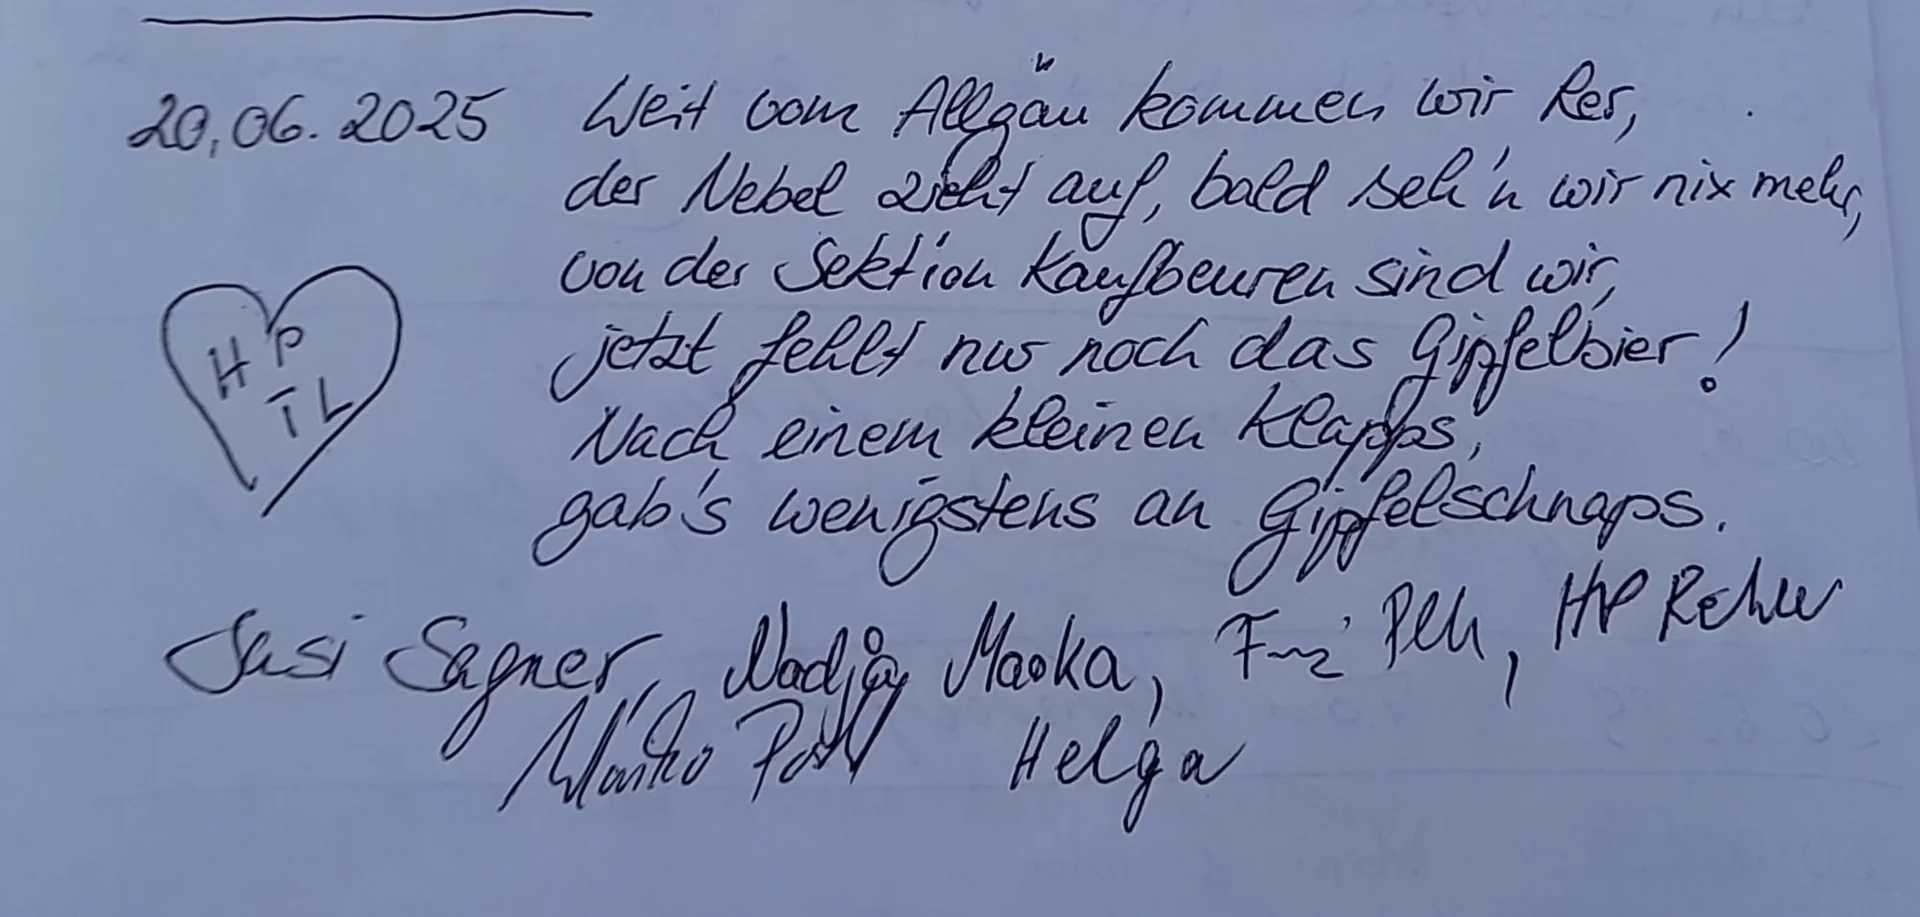 20.06.2025 Weit vom Allgäu kommen wir her,
der Nebel zieht auf, bald seh'n wir nix mehr,
von der Sektion Kaufbeuren sind wir,
jetzt fehlt nur noch das Gipfelbier!
Nach einem kleinen Klapps,
gab's wenigstens an Gipfelschnaps.
H P
T L
Susi Sagner, Nadja Maoka, HP
Helga